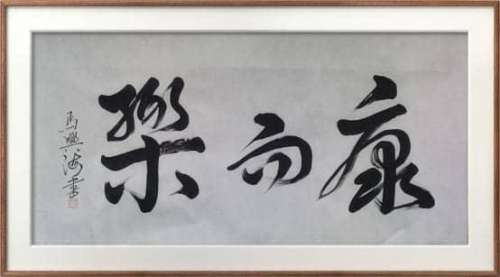 康而樂
馬興海書